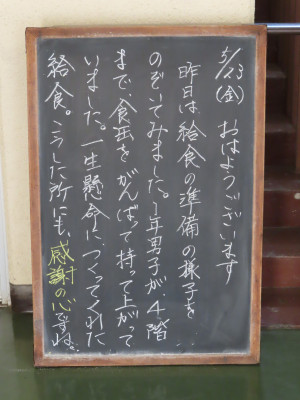 5/23(金) おはようございます
昨日は、給食の準備の様子を
のぞいてみました。1年男子が、4階
まで、食缶をがんばって持って上がって
いました。一生懸命に、つくってくれた
給食。こうした所にも、感謝の心ですね。